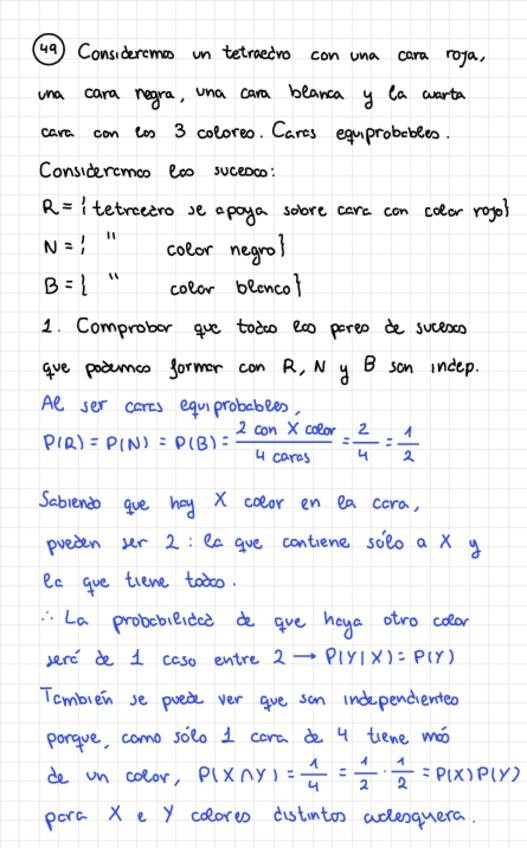 49 Consideremos un tetraedro con una cara roja,
una cara negra, una cara blanca y la cuarta
cara con los 3 colores. Caras equiprobables.
Consideremos los sucesos:
R = { tetraedro se apoya sobre cara con color rojo}
N = { " color negro}
B = { " color blanco}
1. Comprobar que todos los pares de sucesos
que podemos formar con R, N y B son indep.
Al ser caras equiprobables,
P(R) = P(N) = P(B) = 2 con X color / 4 caras = 2/4 = 1/2
Sabiendo que hay X color en la cara,
pueden ser 2 : la que contiene sólo a X y
la que tiene todos.
∴ La probabilidad de que haya otro color
será de 1 caso entre 2 → P(Y|X) = P(Y)
También se puede ver que son independientes
porque, como sólo 1 cara de 4 tiene más
de un color, P(X∩Y) = 1/4 = 1/2 · 1/2 = P(X)P(Y)
para X e Y colores distintos cualesquiera.